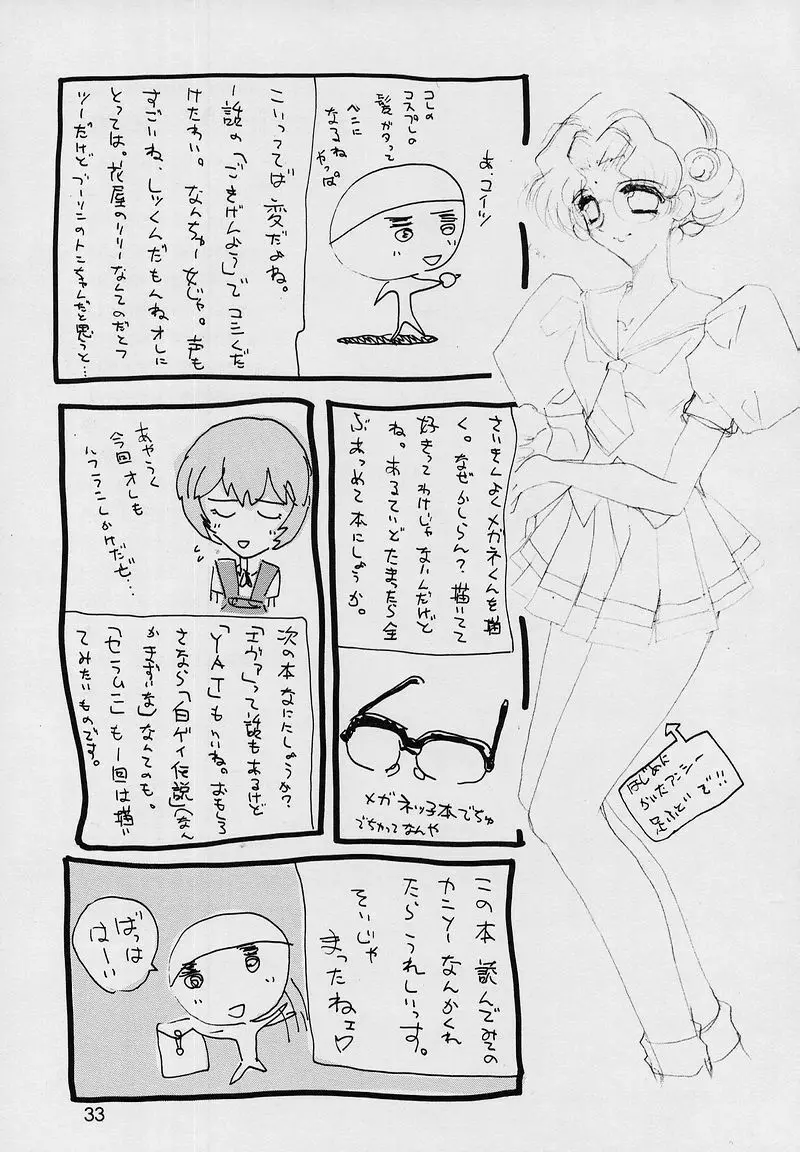 あ、コイツ
コレの
コスプレの
髪がタって
ベニに
なるね
やっぱ
こいってば変だよね。
一話の「ごきげんよう」でコミくだ
けたわい。なんちゅー女じゃ。声も
すごいね、しっくんだもんねオレに
とっては。花屋のリリーなんてのだとっ
ツーだけどブーリンのトンちゃんだと思うと…
さいきんよくメガネくんを描
く。なぜかしらん？描いてて
好きってわけじゃないんだけど
ね。あるていどたまったら全
ぶあつめて本にしようか。
メガネッ子本でちゅ
でちかってなんや
あやうく
今回オレも
ハフランしかけだぜ…
次の本なににしようか？
「エヴァ」って話もあるけど
「YAT」もいいね。おもしろ
さなら「白ゲイ伝説」（なん
かまずいな）なんてのも。
「セラムン」も一回は描い
てみたいものです。
はじめに
がいたアンシー
足ふとい で!!
この本読んでみての
カンソーなんかくれ
たらうれしいっす。
そいじゃ
まったねェ
ばっは
はーい
33